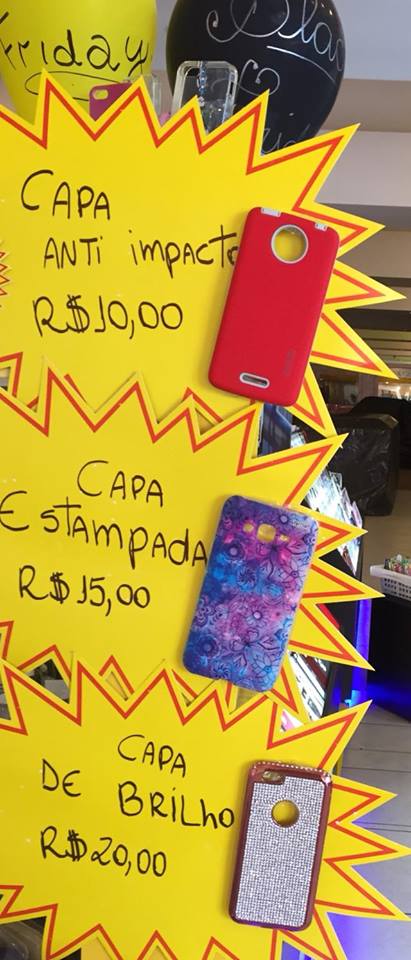 Friday
Black
Friday
CAPA
ANTi impacto
R$10,00
CAPA
EstAmpAdA
R$15,00
CAPA
DE BRiLho
R$20,00